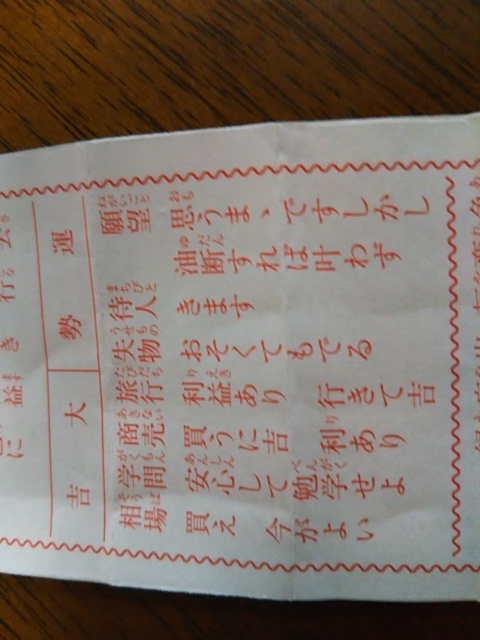 運勢 大吉
願望 思うまゝですしかし
油断すれば叶わず
待人 きます
失物 おそくてもでる
旅行 利益あり 行きて吉
商売 買うに吉 利あり
学問 安心して勉学せよ
相場 買え 今がよい